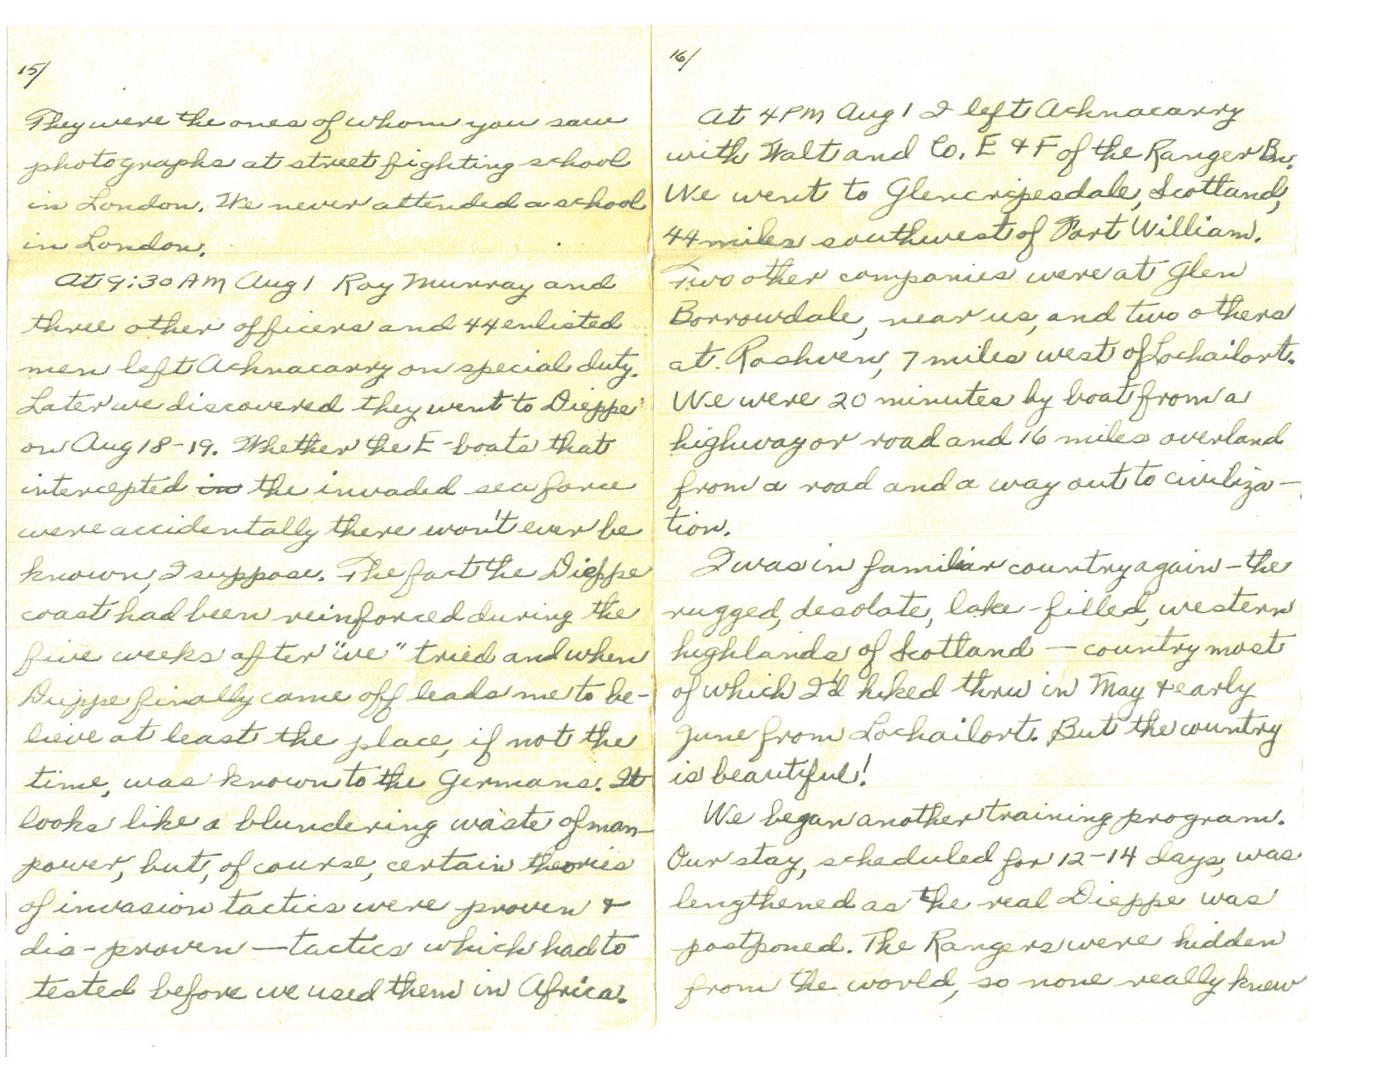 15/
They were the ones of whom you saw
photographs at street fighting school
in London. We never attended a school
in London.
At 9:30 AM Aug 1 Roy Murray and
three other officers and 44 enlisted
men left Achnacarry on special duty.
Later we discovered they went to Dieppe
on Aug 18-19. Whether the E-boats that
intercepted in the invaded sea force
were accidentally there won't ever be
known, I suppose. The fact the Dieppe
coast had been reinforced during the
five weeks after "we" tried and when
Dieppe finally came off leads me to be-
lieve at least the place, if not the
time, was known to the Germans. It
looks like a blundering waste of man-
power, but, of course, certain theories
of invasion tactics were proven &
dis-proven — tactics which had to
tested before we used them in Africa.
16/
At 4 PM Aug 1 I left Achnacarry
with Walt and Co. E & F of the Ranger Bn.
We went to Glencripesdale, Scotland,
44 miles southwest of Fort William.
Two other companies were at Glen
Borrowdale, near us, and two others
at Roshven, 7 miles west of Lochailort.
We were 20 minutes by boat from a
highway or road and 16 miles overland
from a road and a way out to civiliza-
tion.
I was in familiar country again - the
rugged, desolate, lake-filled, western
highlands of Scotland — country most
of which I'd hiked thru in May & early
June from Lochailort. But the country
is beautiful!
We began another training program.
Our stay, scheduled for 12-14 days, was
lengthened as the real Dieppe was
postponed. The Rangers were hidden
from the world, so none really knew